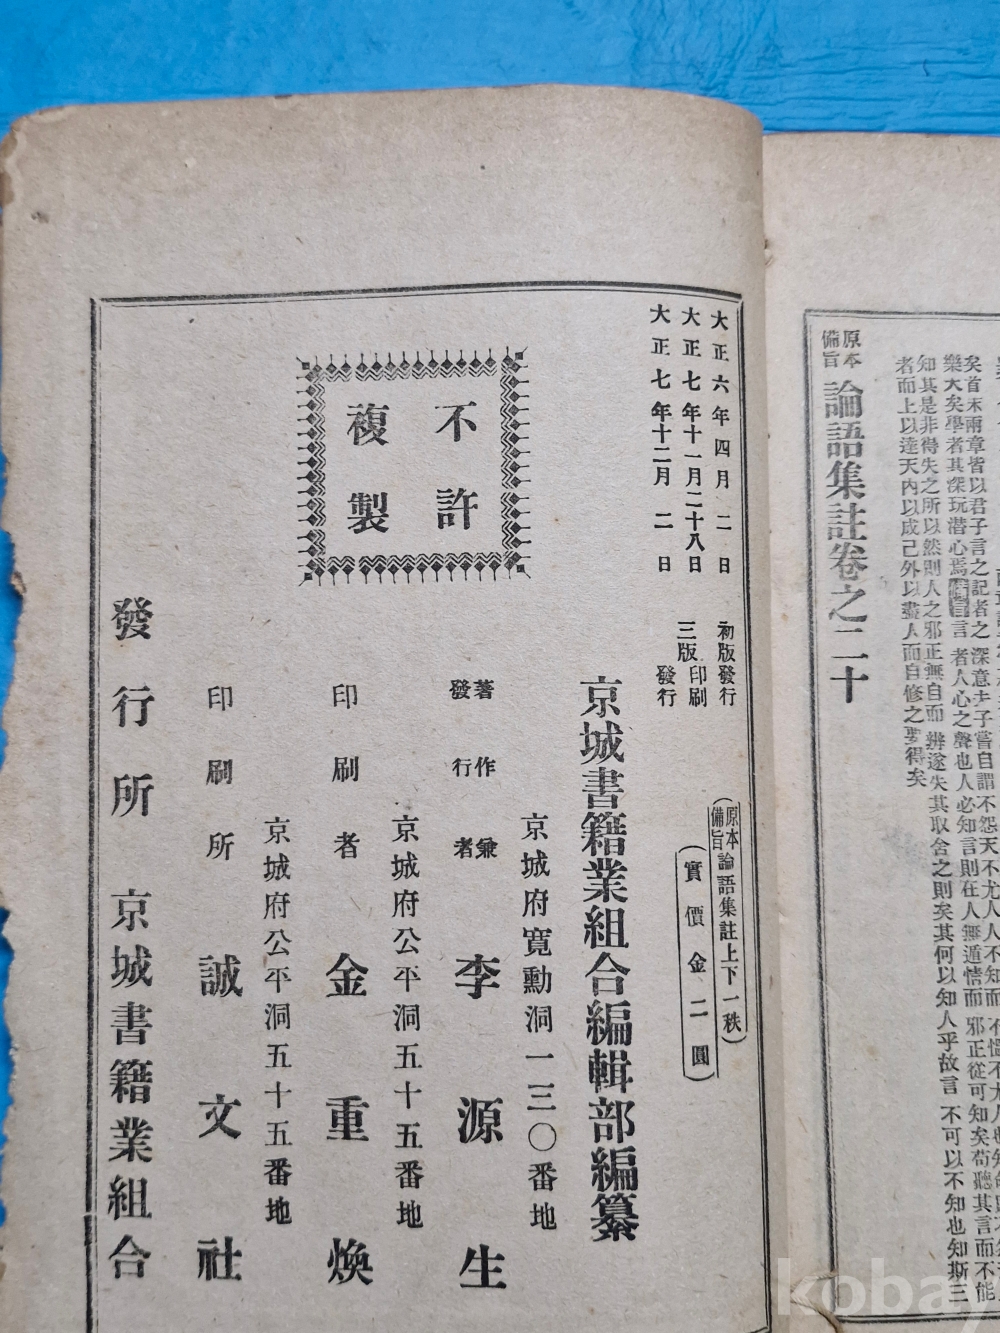 原本
備旨
論語集註卷之二十
矣首末兩章皆以君子言之記者之深意夫子嘗自謂不怨天不尤人
樂大矣學者其深玩潛心焉
知其是非得失之所以然則人之邪正無自而辨遂失其取舍之則矣其何以知人乎故言不可以不知也知斯三
者而上以達天內以成己外以盡人而自修之要得矣
大正六年四月二日 初版發行
大正七年十一月二十八日 三版印刷
大正七年十二月二日 發行
(原本備旨論語集註上下一秩)
(實價金二圓)
不許
複製
京城書籍業組合編輯部編纂
京城府寬勳洞一三〇番地
著作兼
發行者 李源生
京城府公平洞五十五番地
印刷者 金重煥
京城府公平洞五十五番地
印刷所 誠文社
發行所 京城書籍業組合
kobay